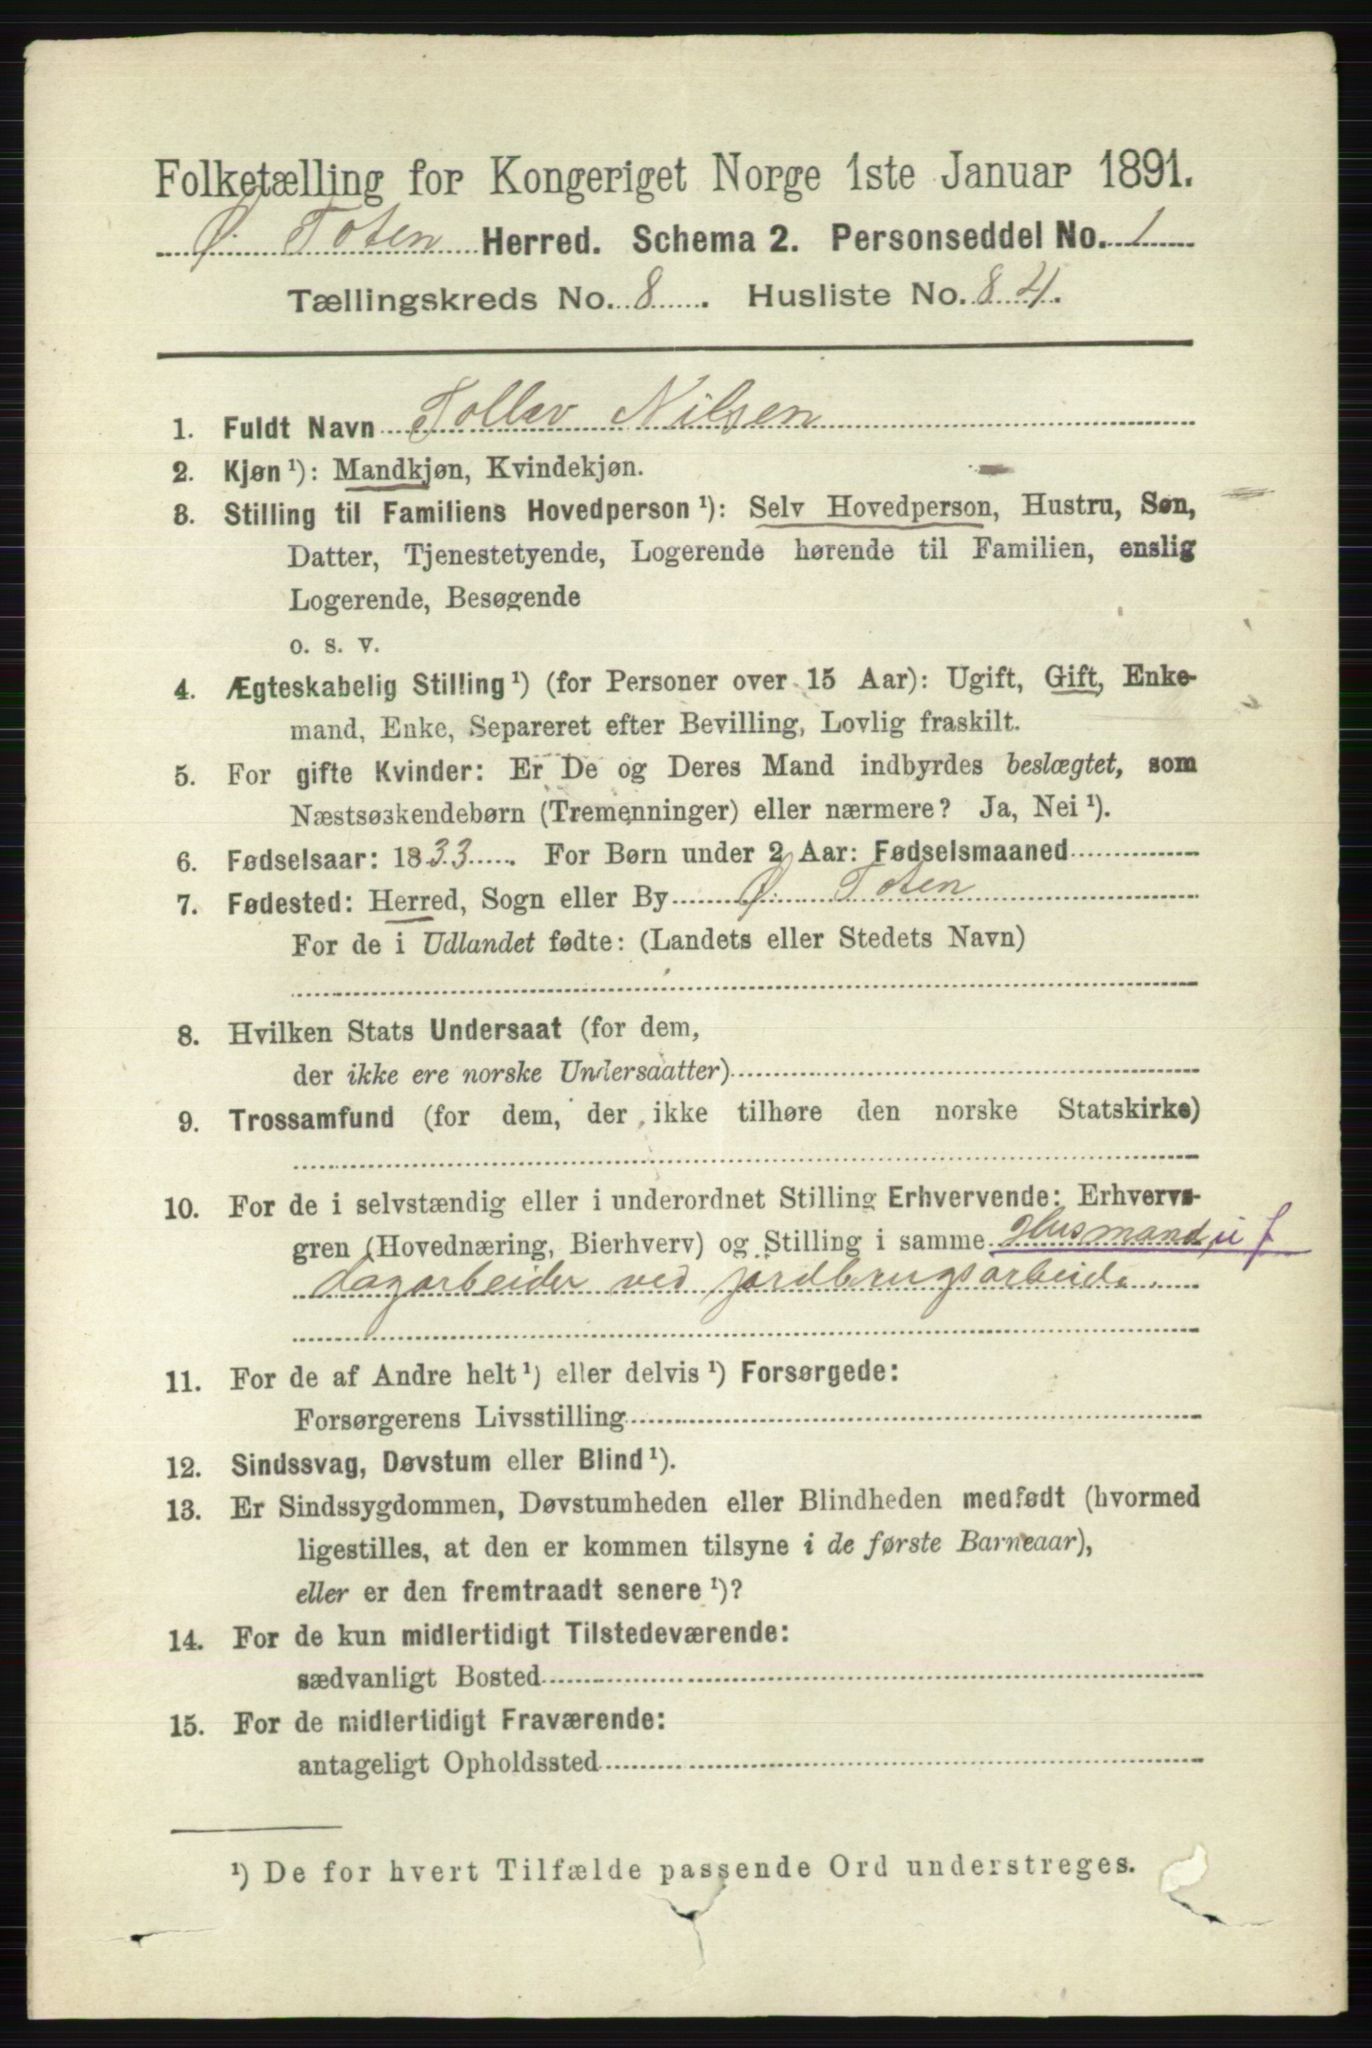 Folketælling for Kongeriget Norge 1ste Januar 1891.
Ø. Toten Herred. Schema 2. Personseddel No. 1
Tællingskreds No. 8. Husliste No. 84.
1. Fuldt Navn Tollev Nilsen
2. Kjøn ¹): Mandkjøn, Kvindekjøn.
3. Stilling til Familiens Hovedperson ¹): Selv Hovedperson, Hustru, Søn,
Datter, Tjenestetyende, Logerende hørende til Familien, enslig
Logerende, Besøgende
o. s. v.
4. Ægteskabelig Stilling ¹) (for Personer over 15 Aar): Ugift, Gift, Enke-
mand, Enke, Separeret efter Bevilling, Lovlig fraskilt.
5. For gifte Kvinder: Er De og Deres Mand indbyrdes beslægtet, som
Næstsøskendebørn (Tremenninger) eller nærmere? Ja, Nei ¹).
6. Fødselsaar: 1833. For Børn under 2 Aar: Fødselsmaaned
7. Fødested: Herred, Sogn eller By Ø. Toten
For de i Udlandet fødte: (Landets eller Stedets Navn)
8. Hvilken Stats Undersaat (for dem,
der ikke ere norske Undersaatter)
9. Trossamfund (for dem, der ikke tilhøre den norske Statskirke)
10. For de i selvstændig eller i underordnet Stilling Erhvervende: Erhvervs-
gren (Hovednæring, Bierhverv) og Stilling i samme Husmand u j
dagarbeider ved jordbrugsarbeide.
11. For de af Andre helt ¹) eller delvis ¹) Forsørgede:
Forsørgerens Livsstilling
12. Sindssvag, Døvstum eller Blind ¹).
13. Er Sindssygdommen, Døvstumheden eller Blindheden medfødt (hvormed
ligestilles, at den er kommen tilsyne i de første Barneaar),
eller er den fremtraadt senere ¹)?
14. For de kun midlertidigt Tilstedeværende:
sædvanligt Bosted
15. For de midlertidigt Fraværende:
antageligt Opholdssted
¹) De for hvert Tilfælde passende Ord understreges.